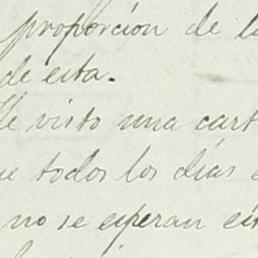 proporción de l
de esta.
He visto una cart
ue todos los días
no se esperan est